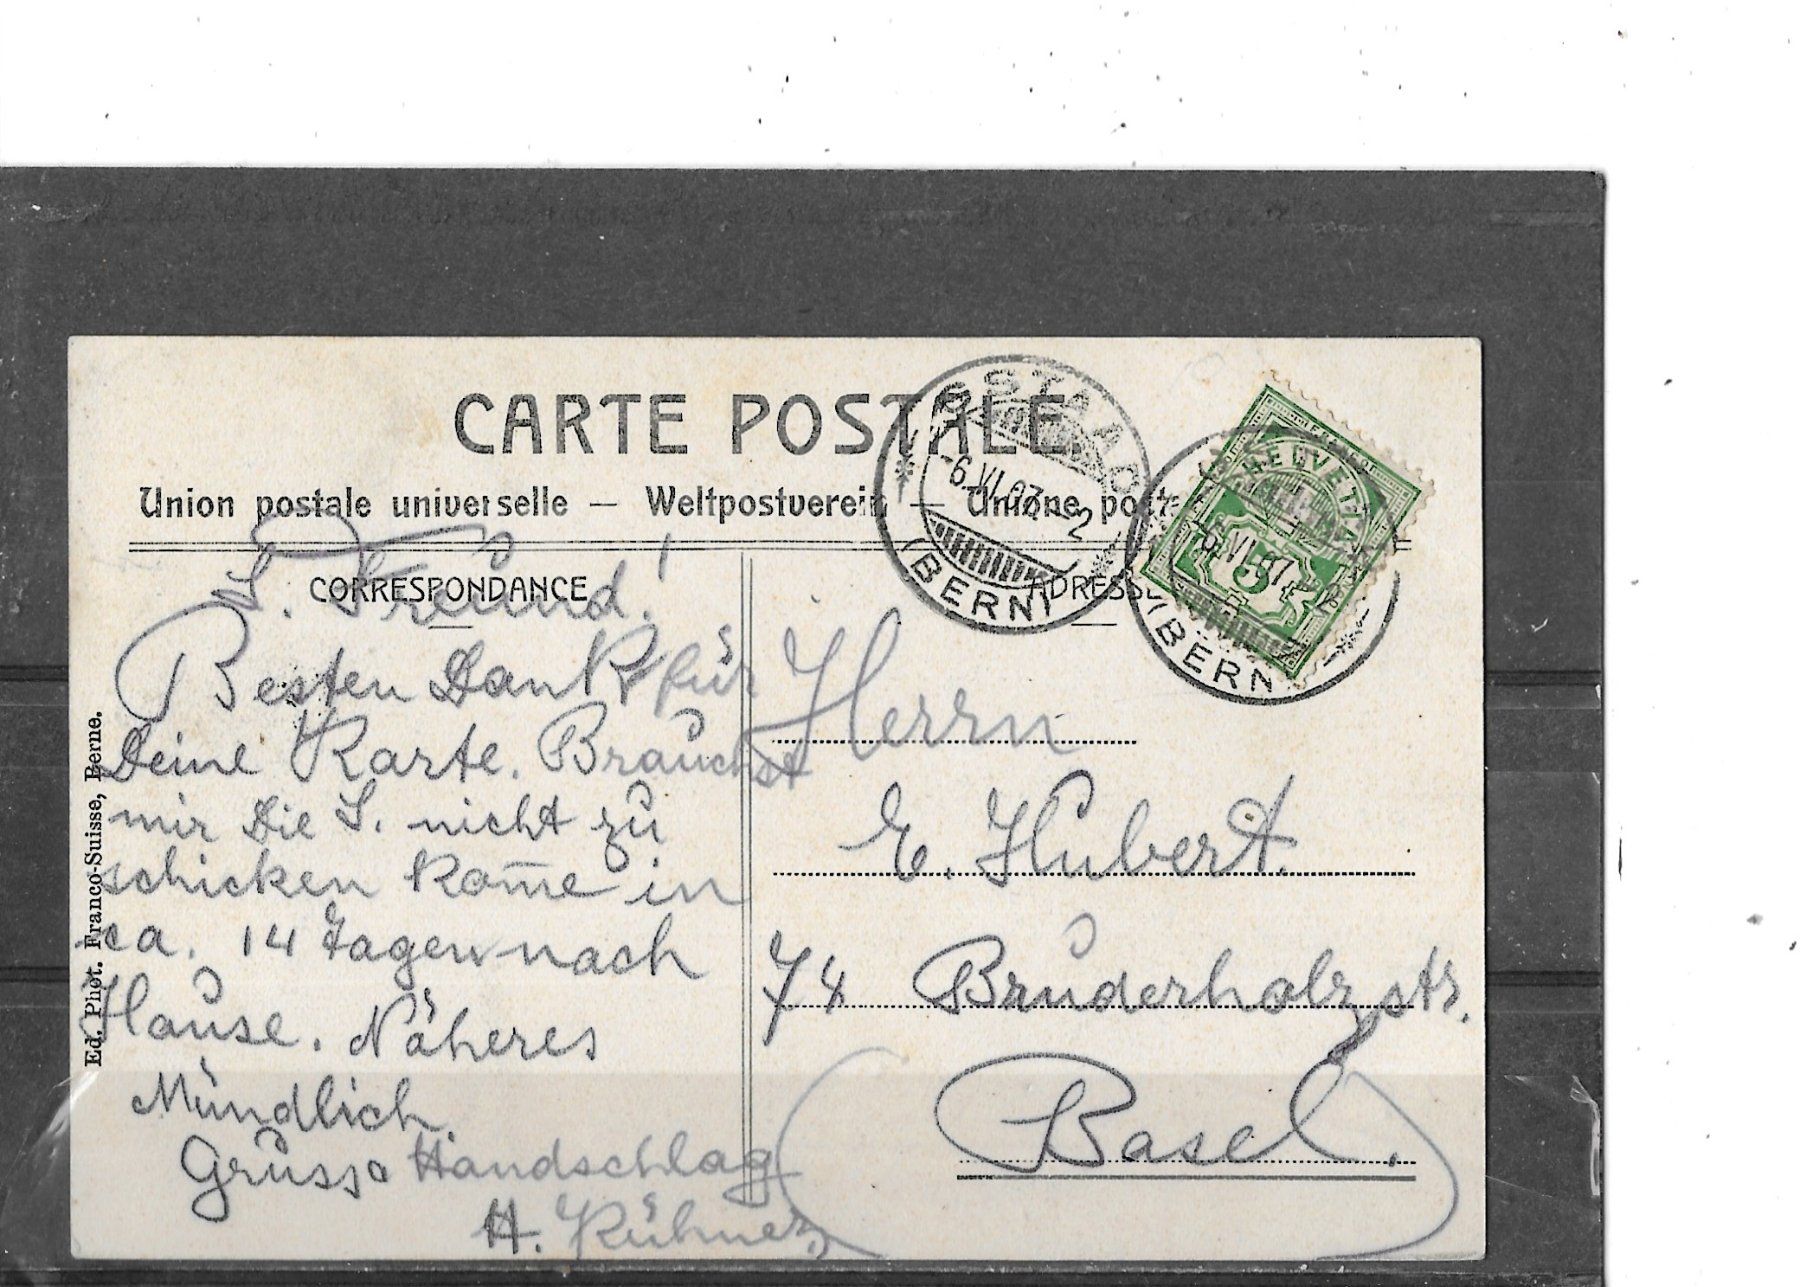 CARTE POSTALE.
Union postale universelle — Weltpostverein — Unione post
CORRESPONDANCE
L. Freund!
Besten Dank für
Deine Karte. Brauchst
mir die S. nicht zu
schicken kom̄e in
ca. 14 Tagen nach
Hause. Näheres
Mündlich.
Gruss & Handschlag
H. Kühner
Ed. Phot. Franco-Suisse, Berne.
ADRESSE
Herrn
E. Hubert.
74 Bruderholzstr.
Basel.
GSTAAD
-6.VI.07.-2
(BERN)
HELVETIA
5
VI.07
(BERN